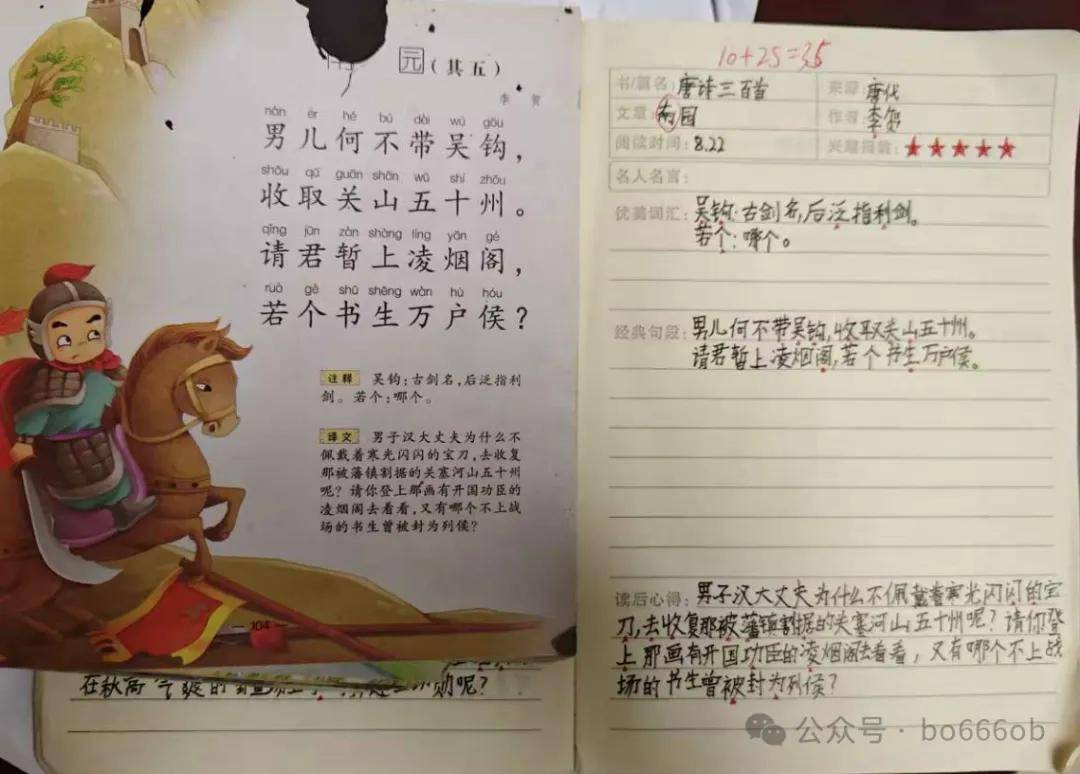 园(其五)
李 贺
nán ér hé bú dài wú gōu
男儿何不带吴钩，
shōu qǔ guān shān wǔ shí zhōu
收取关山五十州。
qǐng jūn zàn shàng líng yān gé
请君暂上凌烟阁，
ruò gè shū shēng wàn hù hóu
若个书生万户侯？
注释 吴钩：古剑名，后泛指利
剑。若个：哪个。
译文 男子汉大丈夫为什么不
佩戴着寒光闪闪的宝刀，去收复
那被藩镇割据的关塞河山五十州
呢？请你登上那画有开国功臣的
凌烟阁去看看，又有哪个不上战
场的书生曾被封为列侯？
104
在秋高气爽的
呢？
10+25=35
书/篇名：唐诗三百首 来源：唐代
文章：南园 作者：李贺
阅读时间：8.22 兴趣指数：★★★★★
名人名言：
优美词汇：吴钩：古剑名，后泛指利剑。
若个：哪个。
经典句段：男儿何不带吴钩，收取关山五十州。
请君暂上凌烟阁，若个书生万户侯。
读后心得：男子汉大丈夫为什么不佩戴着寒光闪闪的宝
刀，去收复那被藩镇割据的关塞河山五十州呢？请你登
上那画有开国功臣的凌烟阁去看看，又有哪个不上战
场的书生曾被封为列侯？
公众号·bo666ob